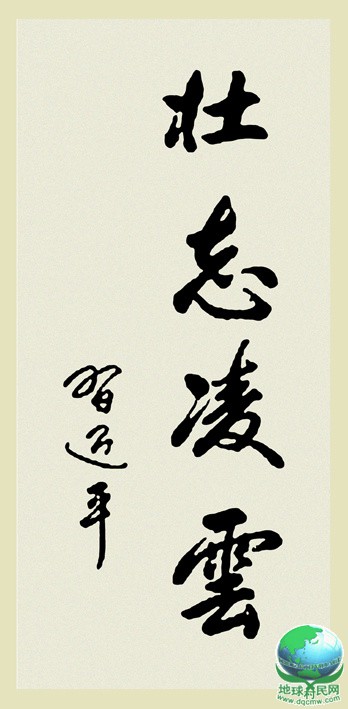 壮志凌雲
習近平
地球村民网
www.dqcmw.com